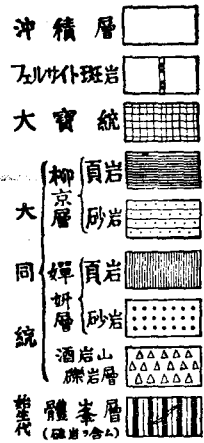 沖積層
フェルサイト斑岩
大寶統
大同統
柳京層
頁岩
砂岩
嬋妍層
頁岩
砂岩
酒岩山
礫岩層
始生代
層
(硅岩ヲ含ム)